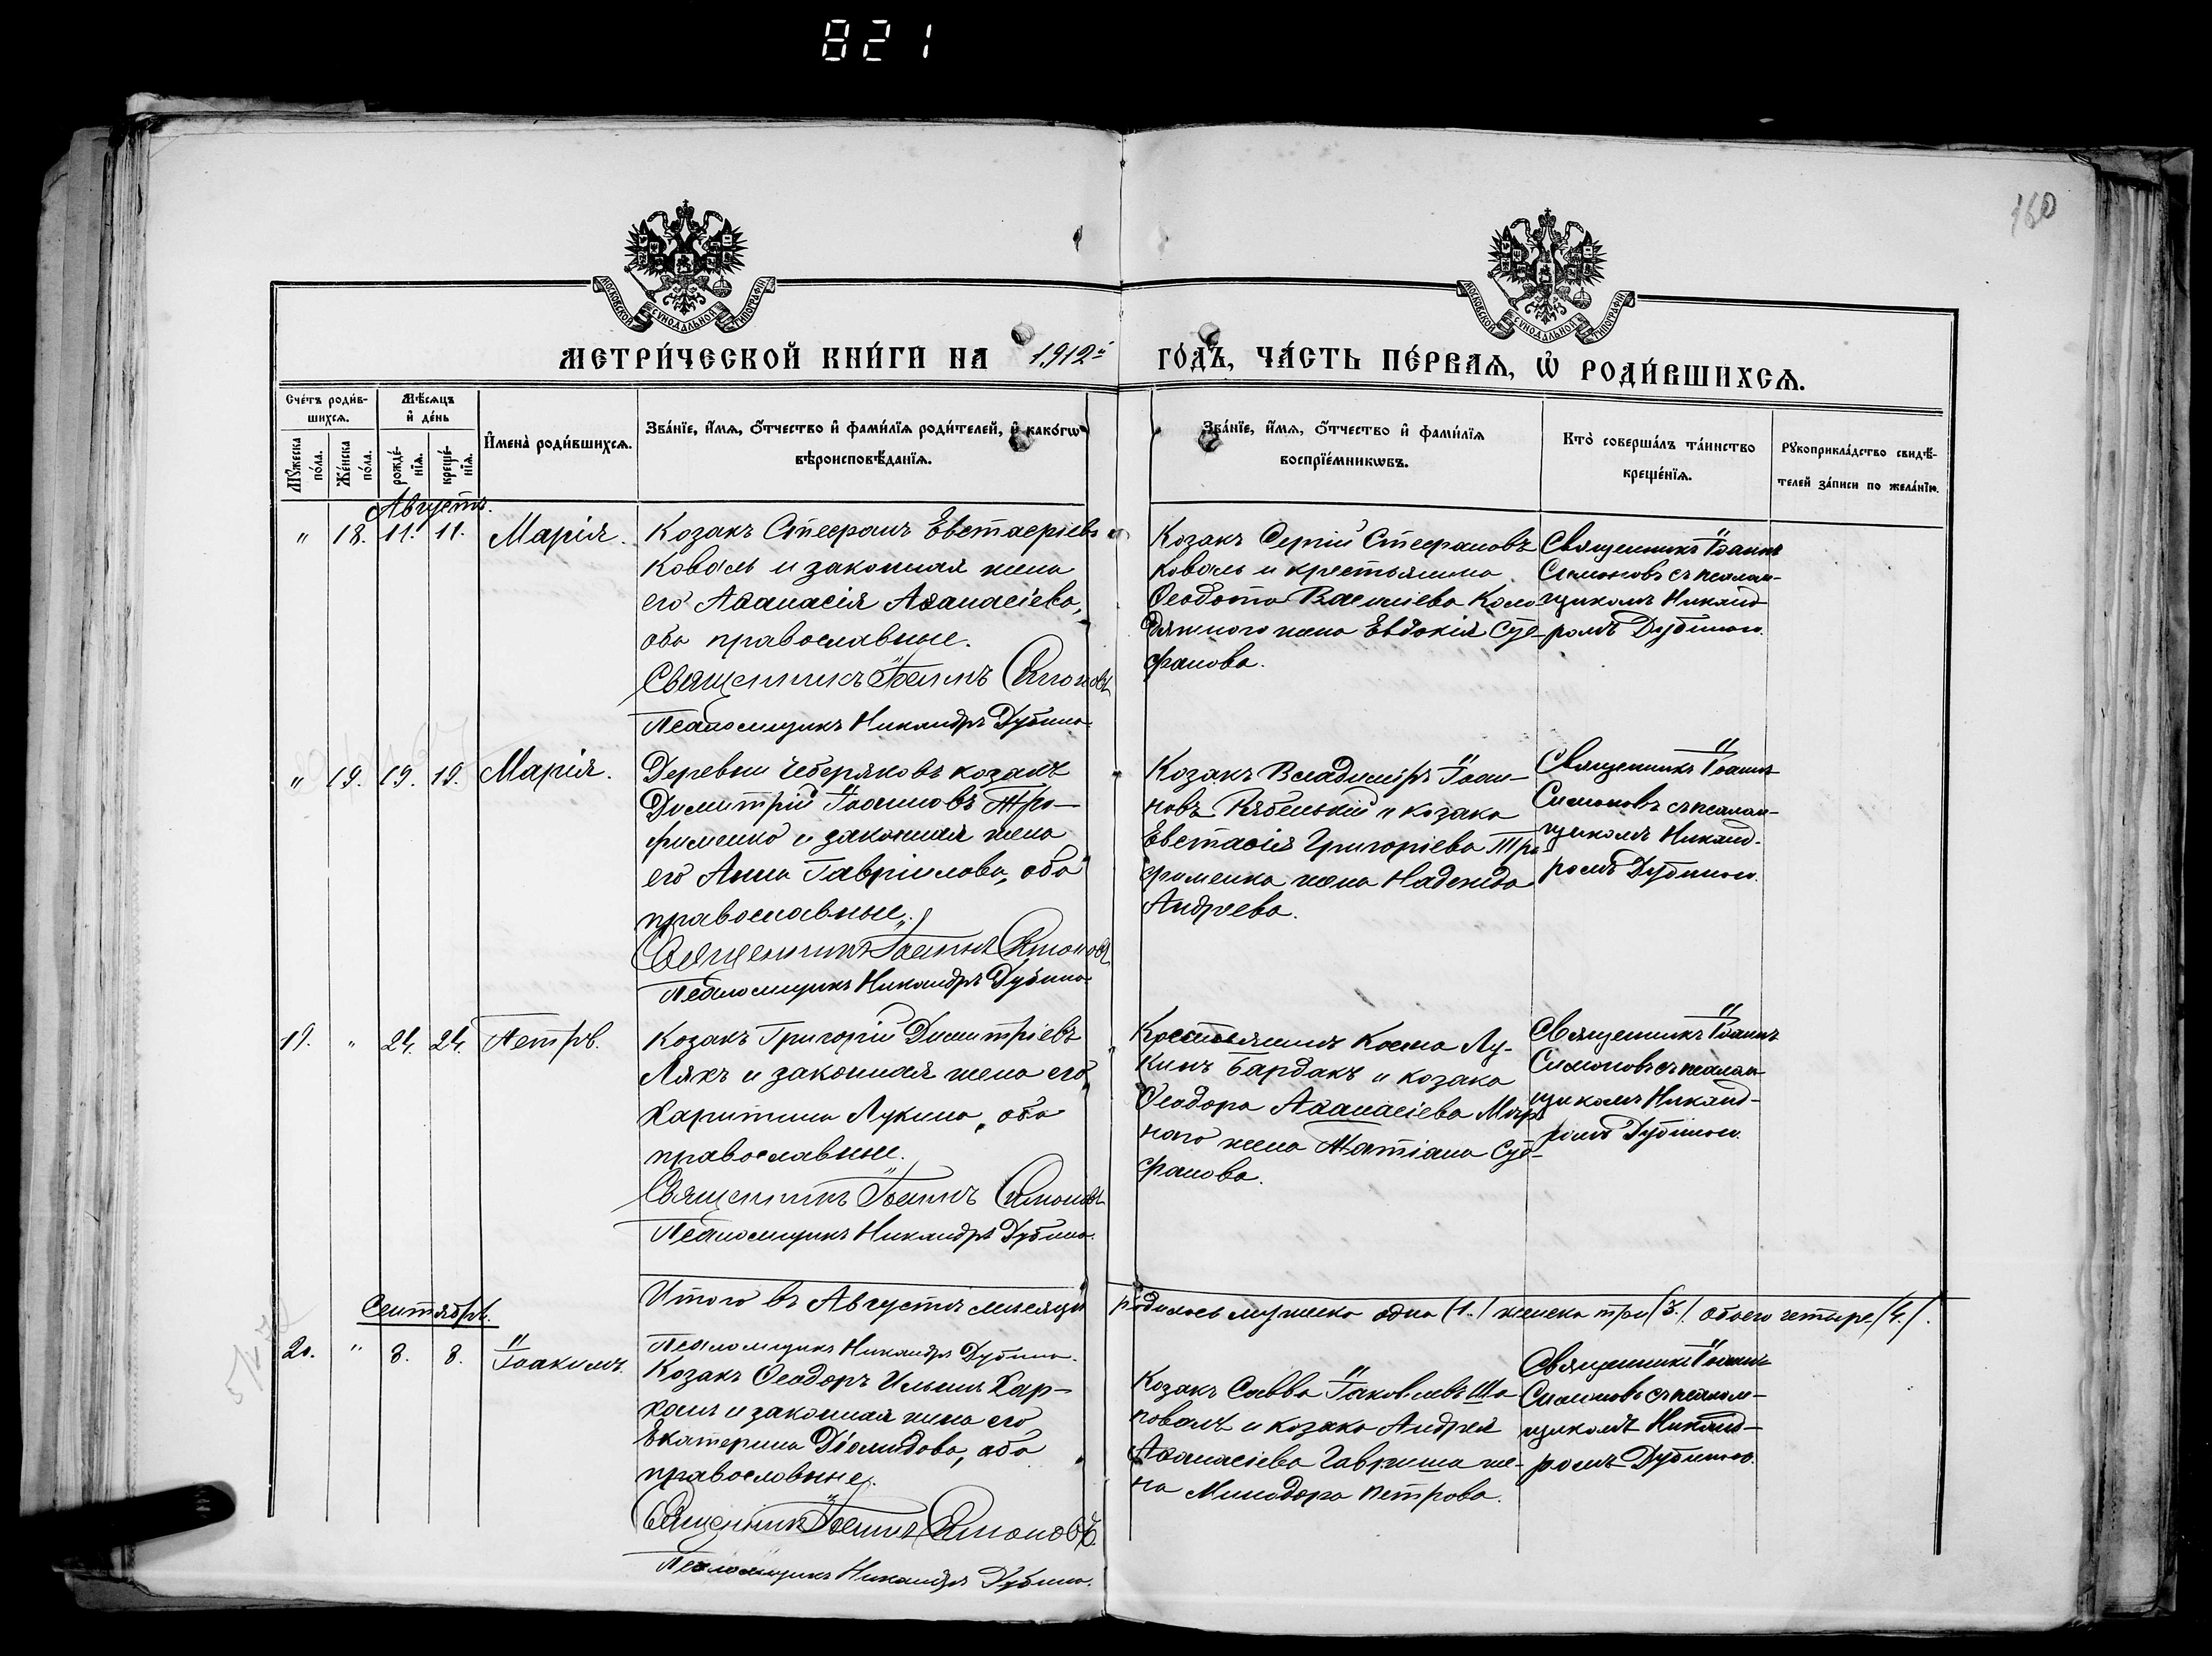 821
160
МОСКОВСКОЙ СѴНОДАЛЬНОЙ ТИПОГРАФІИ
МОСКОВСКОЙ СѴНОДАЛЬНОЙ ТИПОГРАФІИ
МЕТРИ́ЧЕСКОЙ КНИ́ГИ НА 1912й ГО́ДЪ, ЧА́СТЬ ПЕ́РВАѦ, Ѡ҆ РОДИ́ВШИХСѦ.
Сче́тъ роди́в-
шихсѧ.
Мѣ́сѧцъ
и҆ де́нь
Мꙋ́жеска
по́ла.
Же́нска
по́ла.
рожде́-
нїѧ.
креще́-
нїѧ.
И҆мена̀ роди́вшихсѧ.
Зва́нїе, и҆́мѧ, ѻ҆́тчество и҆ фами́лїѧ роди́телей, и҆ како́гѡ
вѣроисповѣ́данїѧ.
Зва́нїе, и҆́мѧ, ѻ҆́тчество и҆ фами́лїѧ
воспрїе́мникѡвъ.
Кто̀ соверша́лъ та́инство
креще́нїѧ.
Рꙋкоприкла́дство свидѣ́-
телей за́писи по жела́нїю.
Августъ.
" 18. 11. 11. Марія.
Козакъ Стефанъ Евстафіевъ
Коваль и законная жена
его Аѳанасія Аѳанасіева,
оба православные.
Священникъ Іоаннъ Симоновъ
Псаломщикъ Никандръ Дубина.
Козакъ Сергій Стефановъ
Коваль и крестьянина
Ѳеодота Василіева Коло-
дяжного жена Евдокія Сте-
фанова.
Священникъ Іоаннъ
Симоновъ съ псалом-
щикомъ Никанд-
ромъ Дубиною.
" 19. 19. 19. Марія.
Деревни Чеберяковъ козакъ
Димитрій Іоанновъ Тро-
фименко и законная жена
его Анна Гавріилова, оба
православные.
Священникъ Іоаннъ Симоновъ
Псаломщикъ Никандръ Дубина.
Козакъ Владиміръ Іоан-
новъ Рябенькій и козака
Евстафія Григоріева Тро-
фименка жена Надежда
Андреева.
Священникъ Іоаннъ
Симоновъ съ псалом-
щикомъ Никанд-
ромъ Дубиною.
19. " 24. 24. Петръ.
Козакъ Григорій Димитріевъ
Ляхъ и законная жена его
Харитина Лукина, оба
православные.
Священникъ Іоаннъ Симоновъ
Псаломщикъ Никандръ Дубина.
Крестьянинъ Косма Лу-
кинъ Бардакъ и козака
Ѳеодора Аѳанасіева Мир-
ного жена Татіана Сте-
фанова.
Священникъ Іоаннъ
Симоновъ съ псалом-
щикомъ Никанд-
ромъ Дубиною.
Итого въ Августѣ мѣсяцѣ родилось мужеска одна /1./ женска три /3./ обоего четыре /4./.
Псаломщикъ Никандръ Дубина.
Сентябрь.
20. " 8. 8. Іоакимъ.
Козакъ Ѳеодоръ Ильинъ Хар-
ханъ и законная жена его
Екатерина Діомидова, оба
православные.
Священникъ Іоаннъ Симоновъ.
Псаломщикъ Никандръ Дубина.
Козакъ Савва Іаковлевъ Ша-
повалъ и козака Андрея
Аѳанасіева Гавриша же-
на Минодора Петрова.
Священникъ Іоаннъ
Симоновъ съ псалом-
щикомъ Никанд-
ромъ Дубиною.